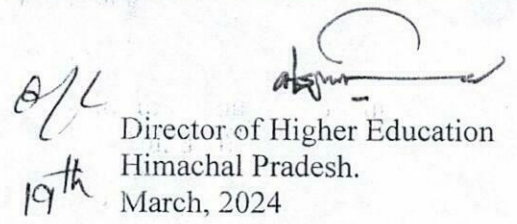 Director of Higher Education
Himachal Pradesh.
19th March, 2024